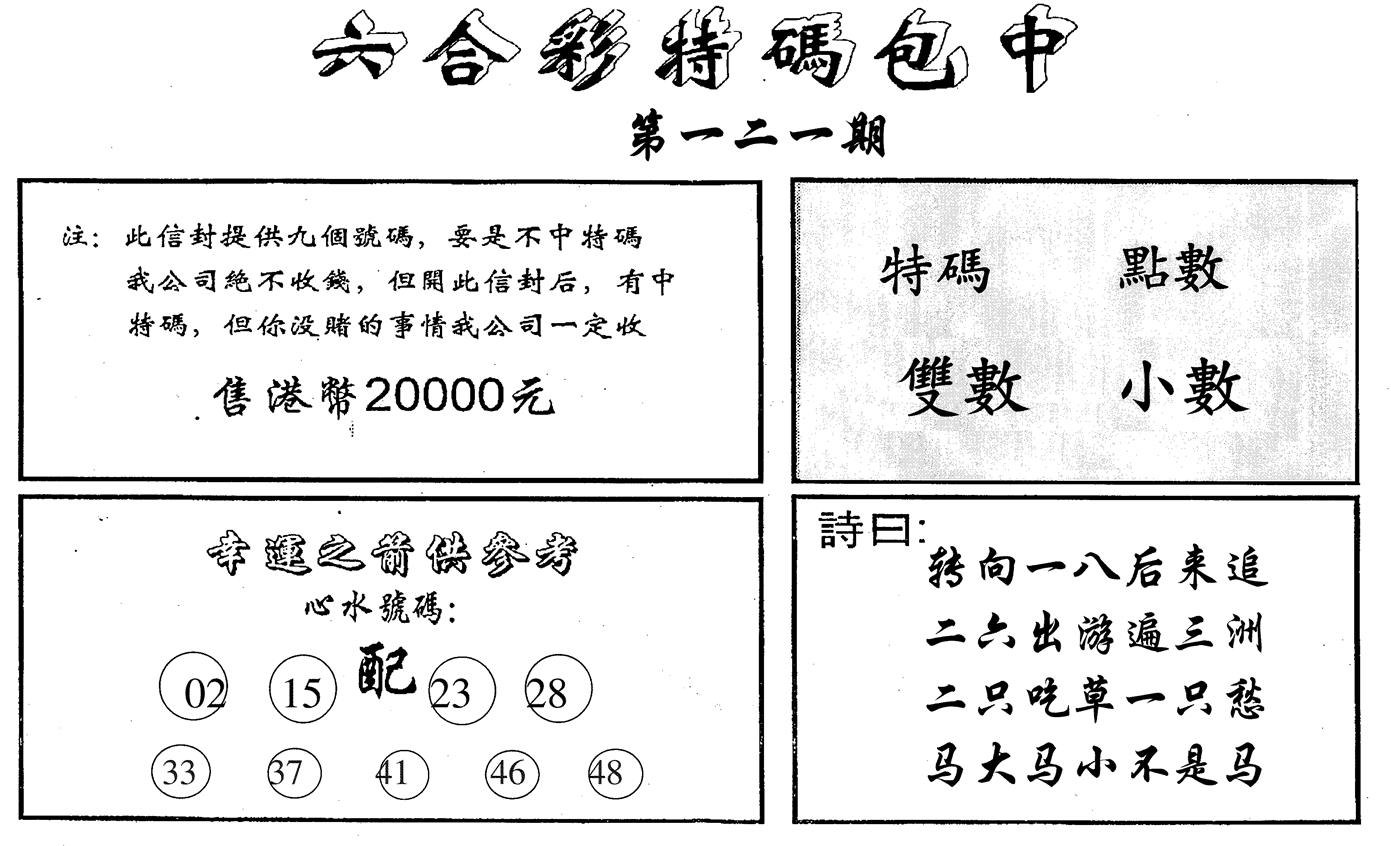 六合彩特碼包中
第一二一期
注：此信封提供九個號碼，要是不中特碼
我公司絕不收錢，但開此信封后，有中
特碼，但你没賭的事情我公司一定收
售港幣20000元
特碼 點數
雙數 小數
幸運之箭供參考
心水號碼：
02 15 配 23 28
33 37 41 46 48
詩曰：
转向一八后来追
二六出游遍三洲
二只吃草一只愁
马大马小不是马